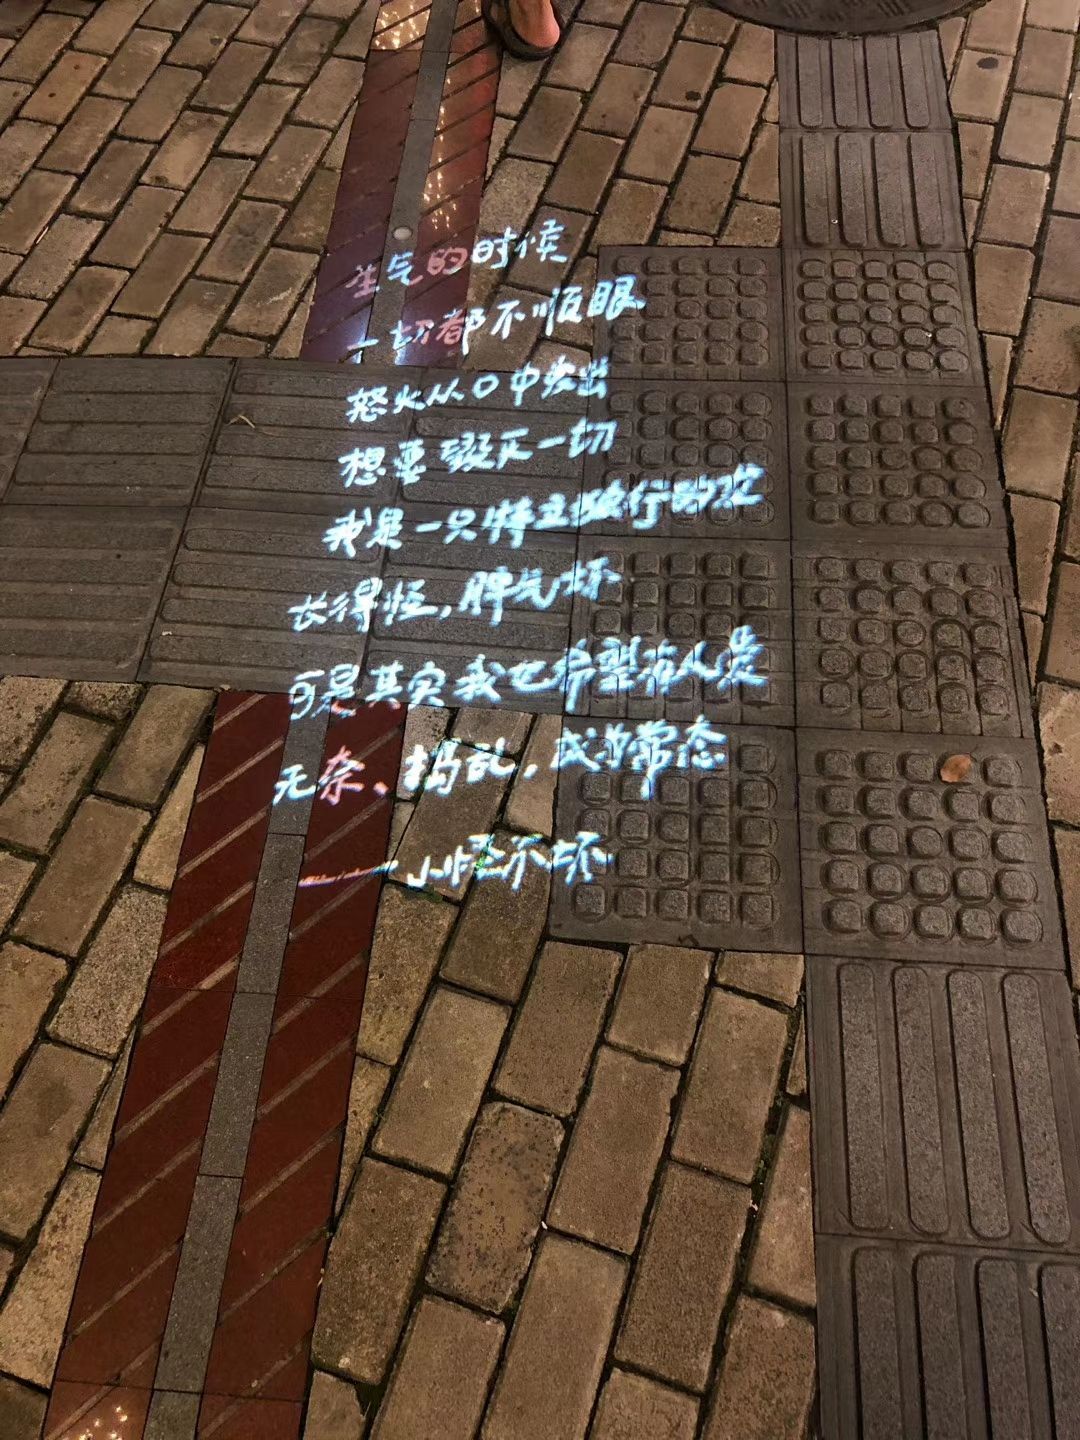 生气的时候
一切都不顺眼
怒火从口中发出
想要毁灭一切
我是一只特立独行的
长得怪，脾气坏
可是其实我也希望有人爱
无奈、捣乱，成为常态
——小怪不坏